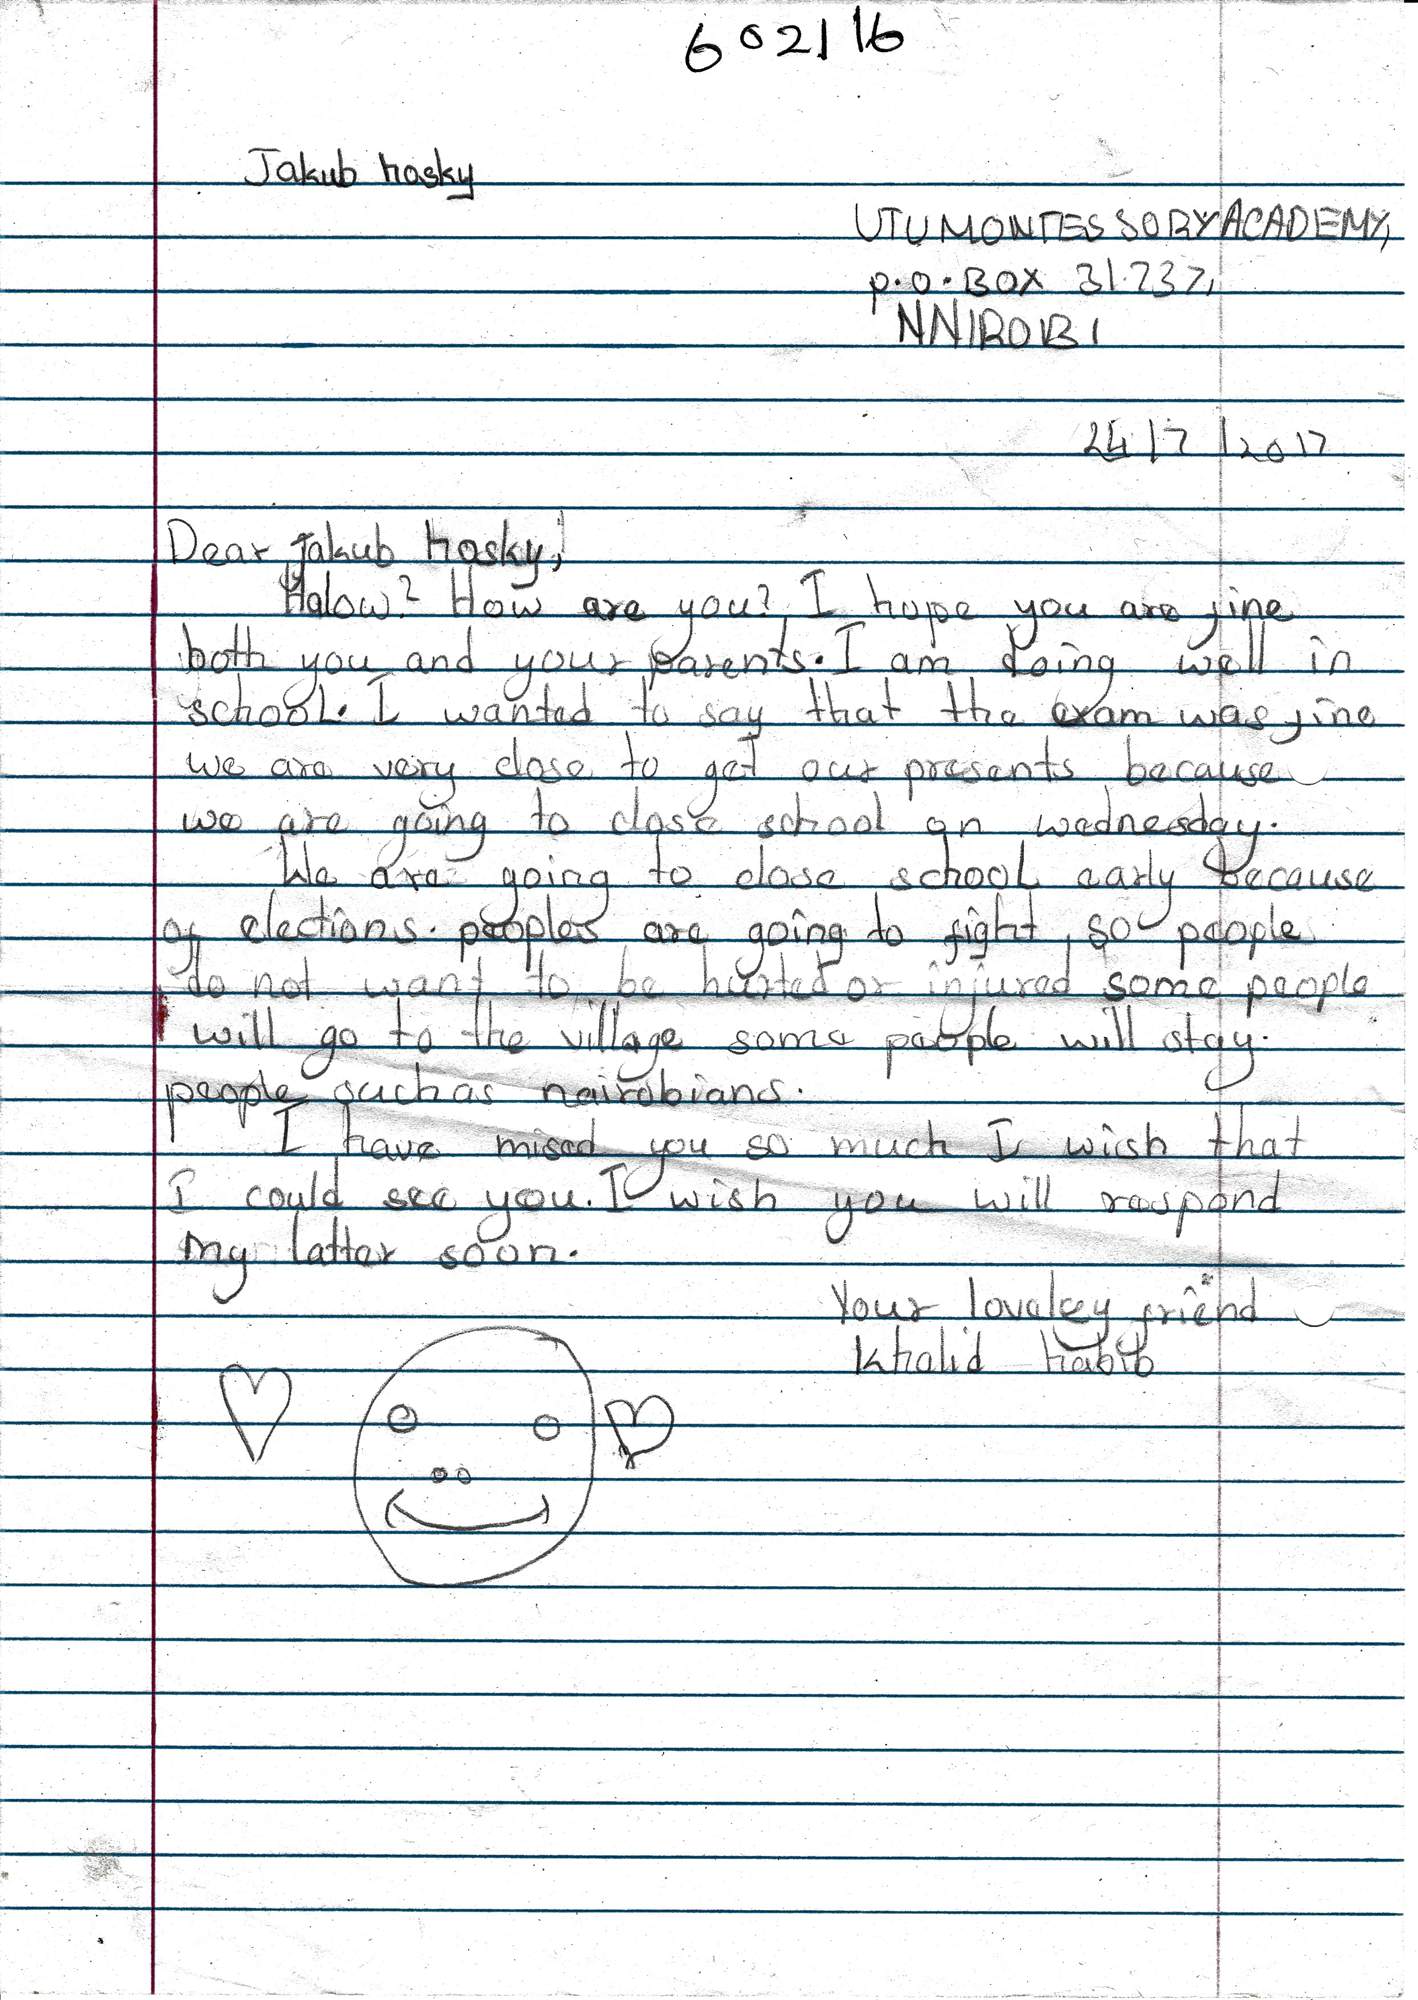 602116
Jakub hosky
UTU MONTESSORY ACADEMY,
P.O.BOX 31737,
NNIROBI
24/7/2017
Dear Jakub hosky,
Halow? How are you? I hope you are fine
both you and your parents. I am doing well in
school. I wanted to say that the exam was fine
we are very close to get our presents because
we are going to close school on wednesday.
We are going to close school early because
of elections. peoples are going to fight so people
do not want to be hurted or injured some people
will go to the village some people will stay.
people such as nairobians.
I have mised you so much I wish that
I could see you. I wish you will respond
my latter soon.
Your lovaley friend
Khalid habib